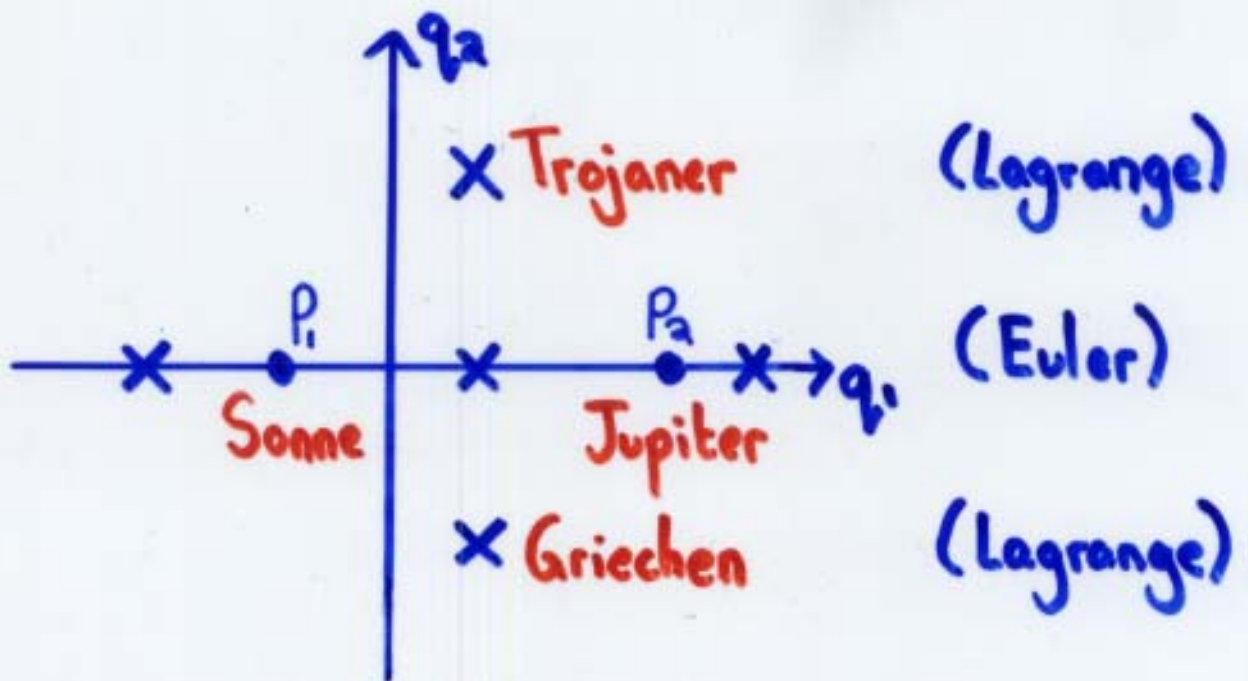 q₂
Trojaner (Lagrange)
P₁ P₂ (Euler)
q₁
Sonne Jupiter
Griechen (Lagrange)